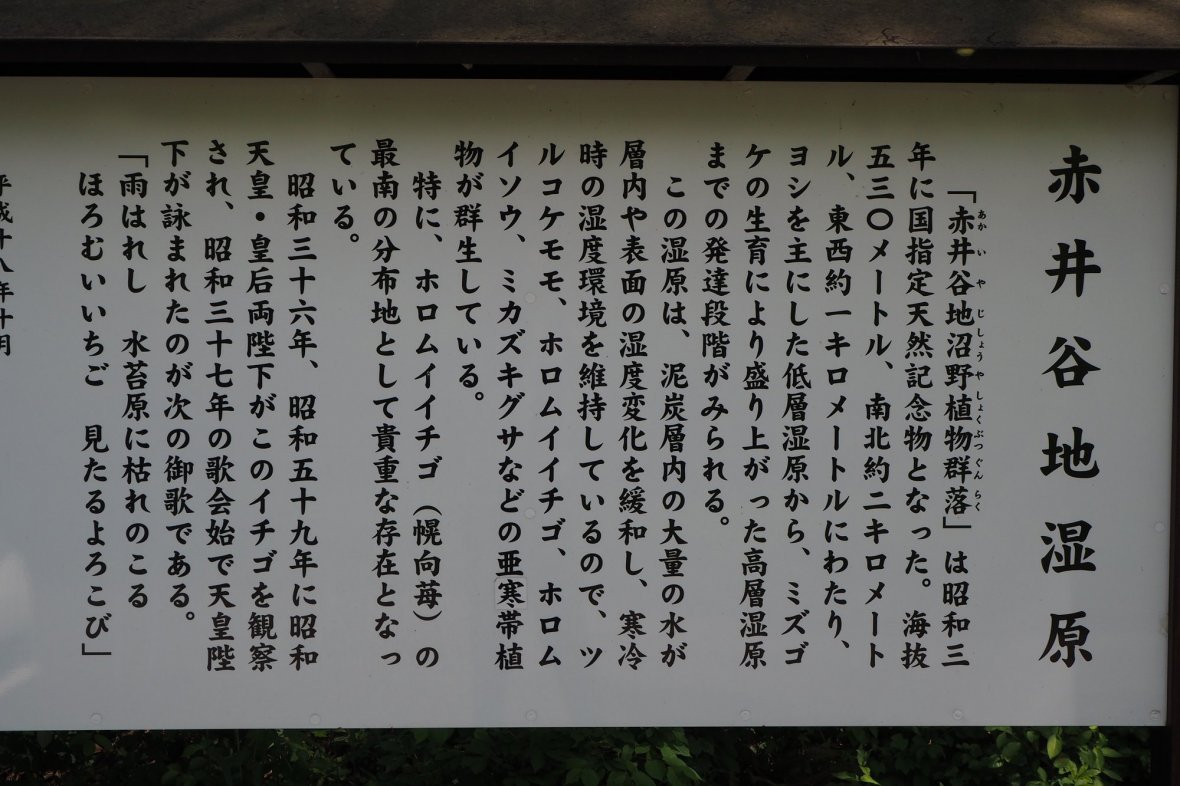 赤井谷地湿原
「赤井谷地沼野植物群落」は昭和三
あかいやじしょうやしょくぶつぐんらく
年に国指定天然記念物となった。海抜
五三〇メートル、南北約二キロメート
ル、東西約一キロメートルにわたり、
ヨシを主にした低層湿原から、ミズゴ
ケの生育により盛り上がった高層湿原
までの発達段階がみられる。
この湿原は、泥炭層内の大量の水が
層内や表面の湿度変化を緩和し、寒冷
時の湿度環境を維持しているので、ツ
ルコケモモ、ホロムイイチゴ、ホロム
イソウ、ミカズキグサなどの亜寒帯植
物が群生している。
特に、ホロムイイチゴ（幌向苺）の
最南の分布地として貴重な存在となっ
ている。
昭和三十六年、昭和五十九年に昭和
天皇・皇后両陛下がこのイチゴを観察
され、昭和三十七年の歌会始で天皇陛
下が詠まれたのが次の御歌である。
「雨はれし　水苔原に枯れのこる
ほろむいいちご　見たるよろこび」
平成十八年十月